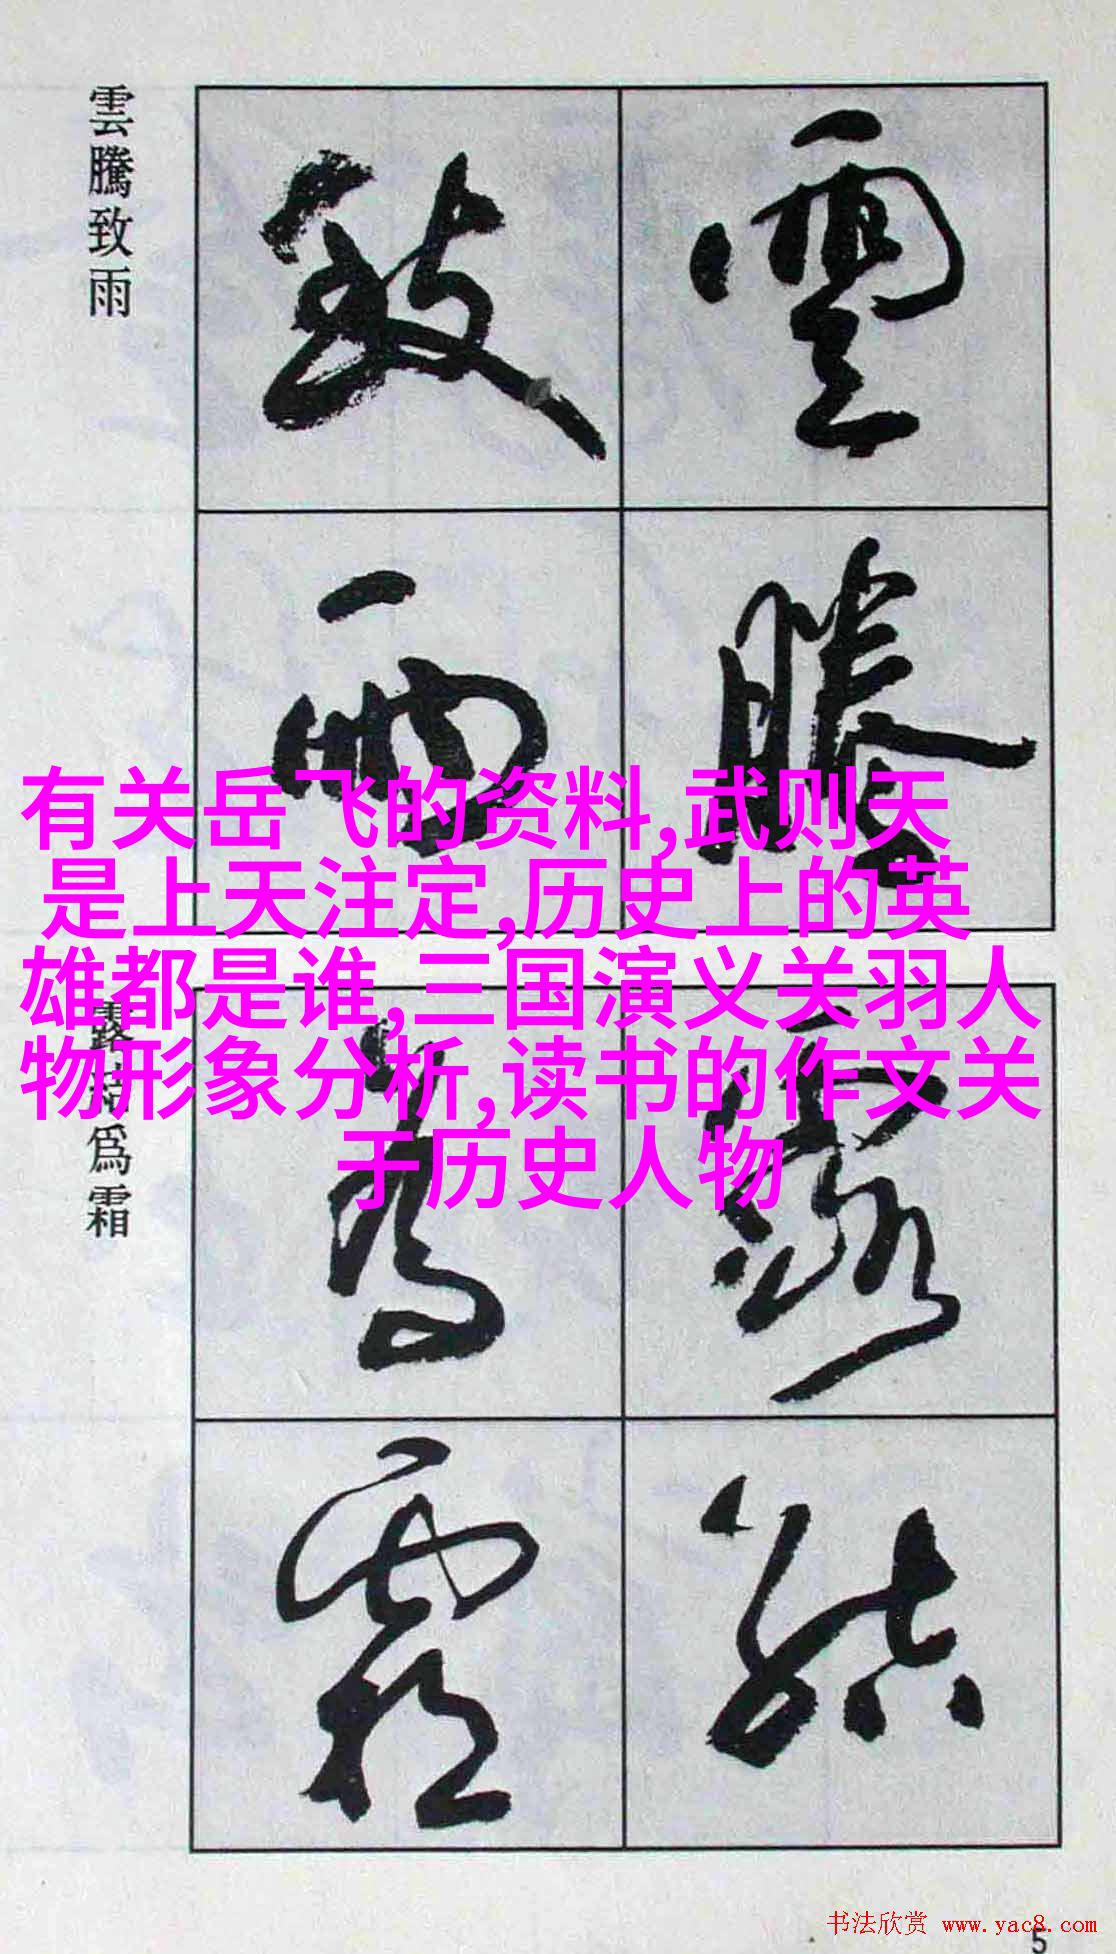 雲騰致雨
雲騰
致雨
有关岳飞的资料,武则天
是上天注定,历史上的英
雄都是谁,三国演义关羽人
物形象分析,读书的作文关
于历史人物
露結為霜
露結
為霜
书法欣赏 www.yac8.com
5